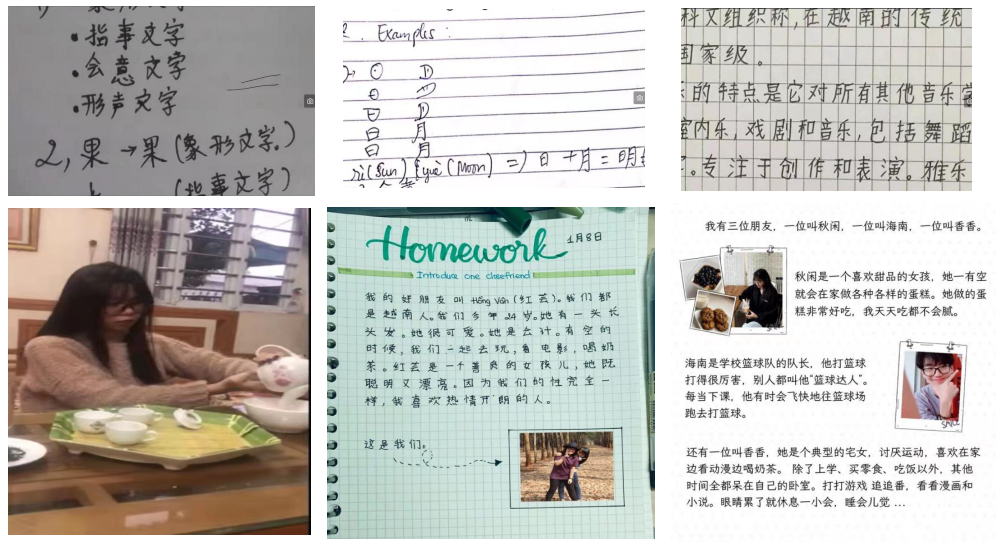 • 指事文字
• 会意文字
• 形声文字
2, 果 → 果 (象形文字。)
(指事文字)
Examples:
日 月
日 月
(Sun) yuè (Moon) => 日 + 月 = 明
科文组织称,在越南的传统
国家级。
的特点是它对所有其他音乐
室内乐,戏剧和音乐,包括舞蹈
。专注于创作和表演。雅乐
Homework 1月8日
Introduce one cheefriend
我的好朋友叫 Hồng Vân (红芸)。我们都
是越南人。我们今年24岁。她有一头长
头发。她很可爱。她是会计。有空的
时候,我们一起去玩,看电影,喝奶
茶。红芸是一个善良的女孩儿,她既
聪明又漂亮。因为我们的性完全一
样,我喜欢热情开朗的人。
这是我们。
我有三位朋友，一位叫秋闲，一位叫海南，一位叫香香。
秋闲是一个喜欢甜品的女孩，她一有空
就会在家做各种各样的蛋糕。她做的蛋
糕非常好吃，我天天吃都不会腻。
海南是学校篮球队的队长，他打篮球
打得很厉害，别人都叫他“篮球达人”。
每当下课，他有时会飞快地往篮球场
跑去打篮球。
SMILE
还有一位叫香香，她是个典型的宅女，讨厌运动，喜欢在家
边看动漫边喝奶茶。 除了上学、买零食、吃饭以外，其他
时间全都呆在自己的卧室。打打游戏 追追番，看看漫画和
小说。眼睛累了就休息一小会，睡会儿觉 ...